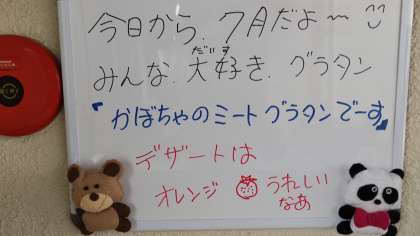 今日から、7月だよ〜
だいす
みんな、大好き、グラタン
『かぼちゃのミートグラタンでーす』
デザートは
オレンジ うれしい
なあ